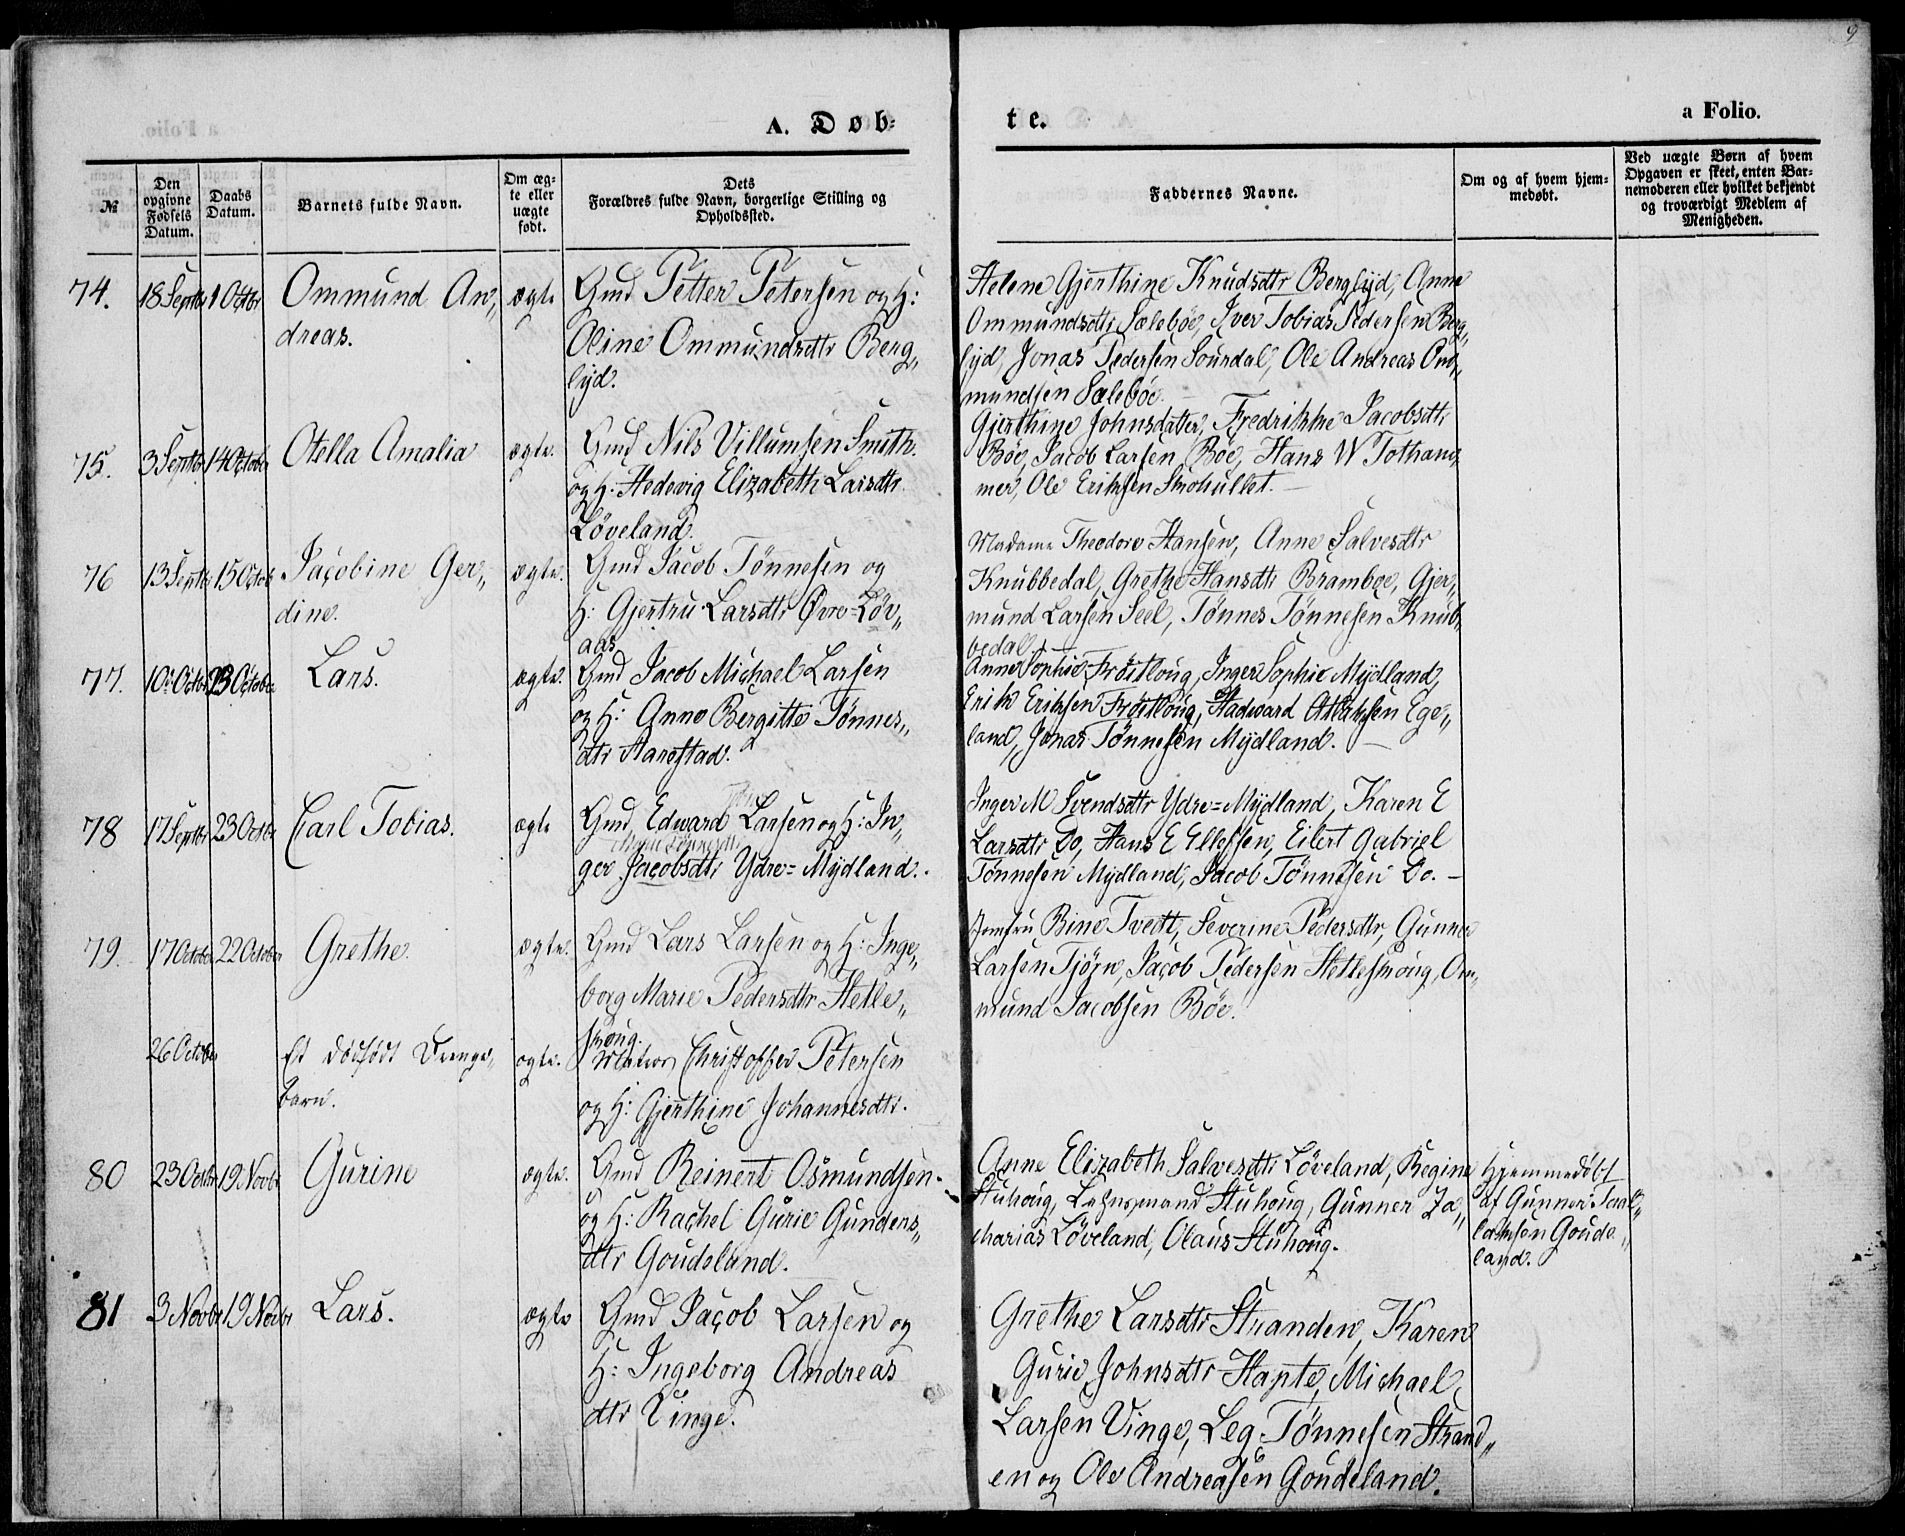 9
A. Døb-
te.
a Folio.
№
Den opgivne Fødsels Datum.
Daabs Datum.
Barnets fulde Navn.
Om ægte eller uægte født.
Dets Forældres fulde Navn, borgerlige Stilling og Opholdssted.
Faddernes Navne.
Om og af hvem hjemmedøbt.
Ved uægte Børn af hvem Opgaven er skeet, enten Barnemoderen eller hvilket bekjendt og troværdigt Medlem af Menigheden.
74.
18 Septbr
1 Octbr
Ommund An„
dreas.
ægte
Gmd Petter Petersen og H:
Oline Ommundsdtr Berg„
lyd.
Helene Gjerthine Knudsdtr Berglyd, Anne
Ommundsdtr Sælebøe, Iver Tobias Pedersen Berg„
lyd, Jonas Pedersen Sourdal, Ole Andreas Om„
mundsen Sælebøe.
75.
3 Septbr
14 October
Otella Amalia
ægte.
Gmd Nils Villumsen Smith
og H: Hedevig Elizabeth Larsdtr
Løveland.
Gjerthine Johnsdatter, Fredrikke Jacobsdtr
Bøe, Jacob Larsen Bøe, Hans W Totham„
mer, Ole Eriksen
76
13 Septbr
15 Octob
Jacobine Ger„
dine.
ægte.
Gmd Jacob Tønnesen og
H: Gjertru Larsdtr Øvre-Løv„
aas
Madame Theodore Hansen, Anne Salvesdtr
Knubbedal, Grethe Hansdtr Bramboe, Gjer„
mund Larsen Seel, Tønnes Tønnesen Knub„
bedal.
77.
10 Octbr
23 October
Lars.
ægte.
Gmd Jacob Michael Larsen
og H: Anne Bergitte Tønnes„
dtr Hanestad.
Anne Sophie Frøitloug, Inger Sophie Mydland,
Erik Eriksen Frøitloug, Hadward Atlaksen Ege„
land, Jonas Tønnesen Mydland.
78
17 Septbr
23 Octbr
Carl Tobias.
ægte
Gmd Edward Larsen og H: In„
ger Jacobsdtr Ydre-Mydland.
Inger M Svendsdtr Ydre-Mydland, Karen E
Larsdtr Do, Hans E Ellefsen, Eilert Gabriel
Tønnesen Mydland, Jacob Tønnesen Do.
79.
17 October
22 October
Grethe.
ægte.
Gmd Lars Larsen og H: Inge„
borg Marie Pedersdtr Hetle„
skoug.
Jomfru Bine Tvedt, Severine Pedersdtr, Gunner
Larsen Tjørn, Jacob Pedersen Hetleskoug, Om„
mund Jacobsen Bøe.
26 October
Et dødfødt Drenge„
barn.
ægte.
Matros Christoffer Petersen
og H: Gjerthine Johannesdtr.
80
23 Octbr
19 Novbr
Gurine
ægte.
Gmd Reinert Osmundsen
og H: Rachel Gurie Gunders„
dtr Goudeland.
Anne Elizabeth Salvesdtr Løveland, Regine
Stuhoug, Lehnsmand Stuhoug, Gunner Za„
charias Løveland, Olaus Stuhoug.
Hjemmedøbt
af Gunner
Goude„
land.
81
3 Novbr
19 Novbr
Lars.
ægte
Gmd Jacob Larsen og
H: Ingeborg Andreas
dtr Vinge.
Grethe Larsdtr Stranden, Karen
Gurie Johnsdtr Hapte, Michael
Larsen Vinge, Leg. Tønnesen Strand„
en og Ole Andreasen Goudeland.